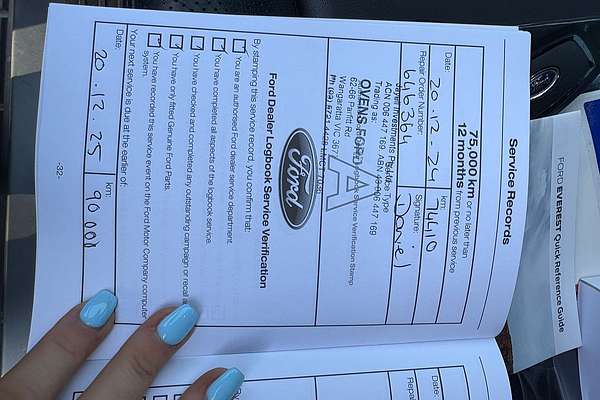 Service Records
75,000 km or no later than
12 months from previous service
Date: 20.12.24 km:
Repair Order Number: 646394 Signature: Daniel
Service Type
A
Jayell Investments Pty Ltd
ACN 006 447 169, ABN 49 006 447 169
Trading as:
OVENS FORD
62-66 Parfitt Rd
Wangaratta VIC 367
Service Verification Stamp
Ford
Ford Dealer Logbook Service Verification
By stamping this service record, you confirm that:
You are an authorised Ford dealer service department.
You have completed all aspects of the logbook service.
You have checked and completed any outstanding campaign or recal
You have only fitted Genuine Ford Parts.
You have recorded this service event on the Ford Motor Company computer
system.
Your next service is due at the earlier of:
Date: 20.12.25 km: 90 000
-32-
Date:
km
Repa
FORD EVEREST Quick Reference Guide
Ford